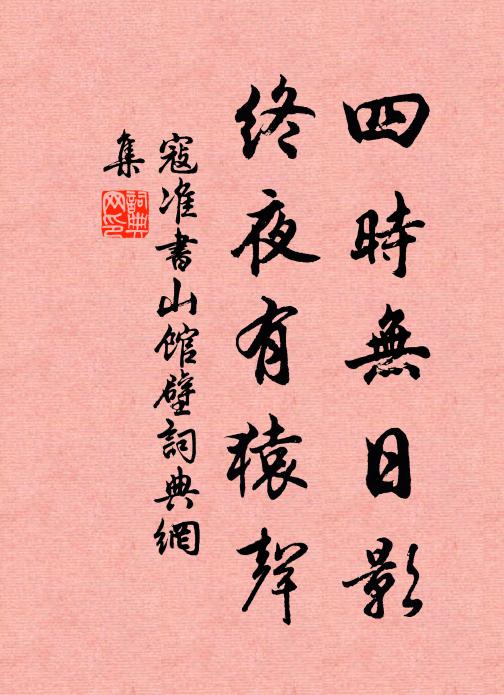 四時無日影
終夜有猿聲
寇准書山館壁詞典網
集
詞典
网印